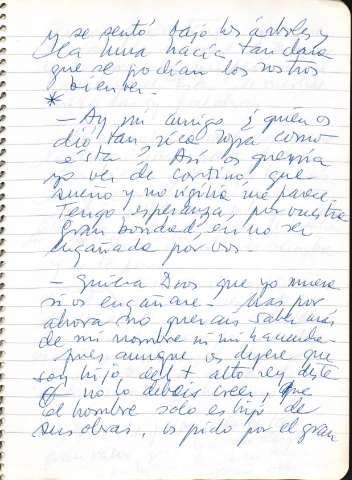 y se sentó bajo los árboles y
la luna hacía tan clara
que se podían los rostros
bien ver.
*
— Ay mi amigo ¿quién os
dió tan rica ropa como
ésta? Así os querría
yo ver de contino, que
sueño y no vigilia me parece.
Tengo esperanza, por vuestra
gran bondad, en no ser
engañada por vos.
— Quiera Dios que yo muera
si os engañare. Mas por
ahora no queráis saber más
de mi nombre ni mi hacienda
pues aunque os dijere que
soy hijo del + alto rey deste
no lo debéis creer, que
el hombre solo es hijo de
sus obras, os pido por el gran